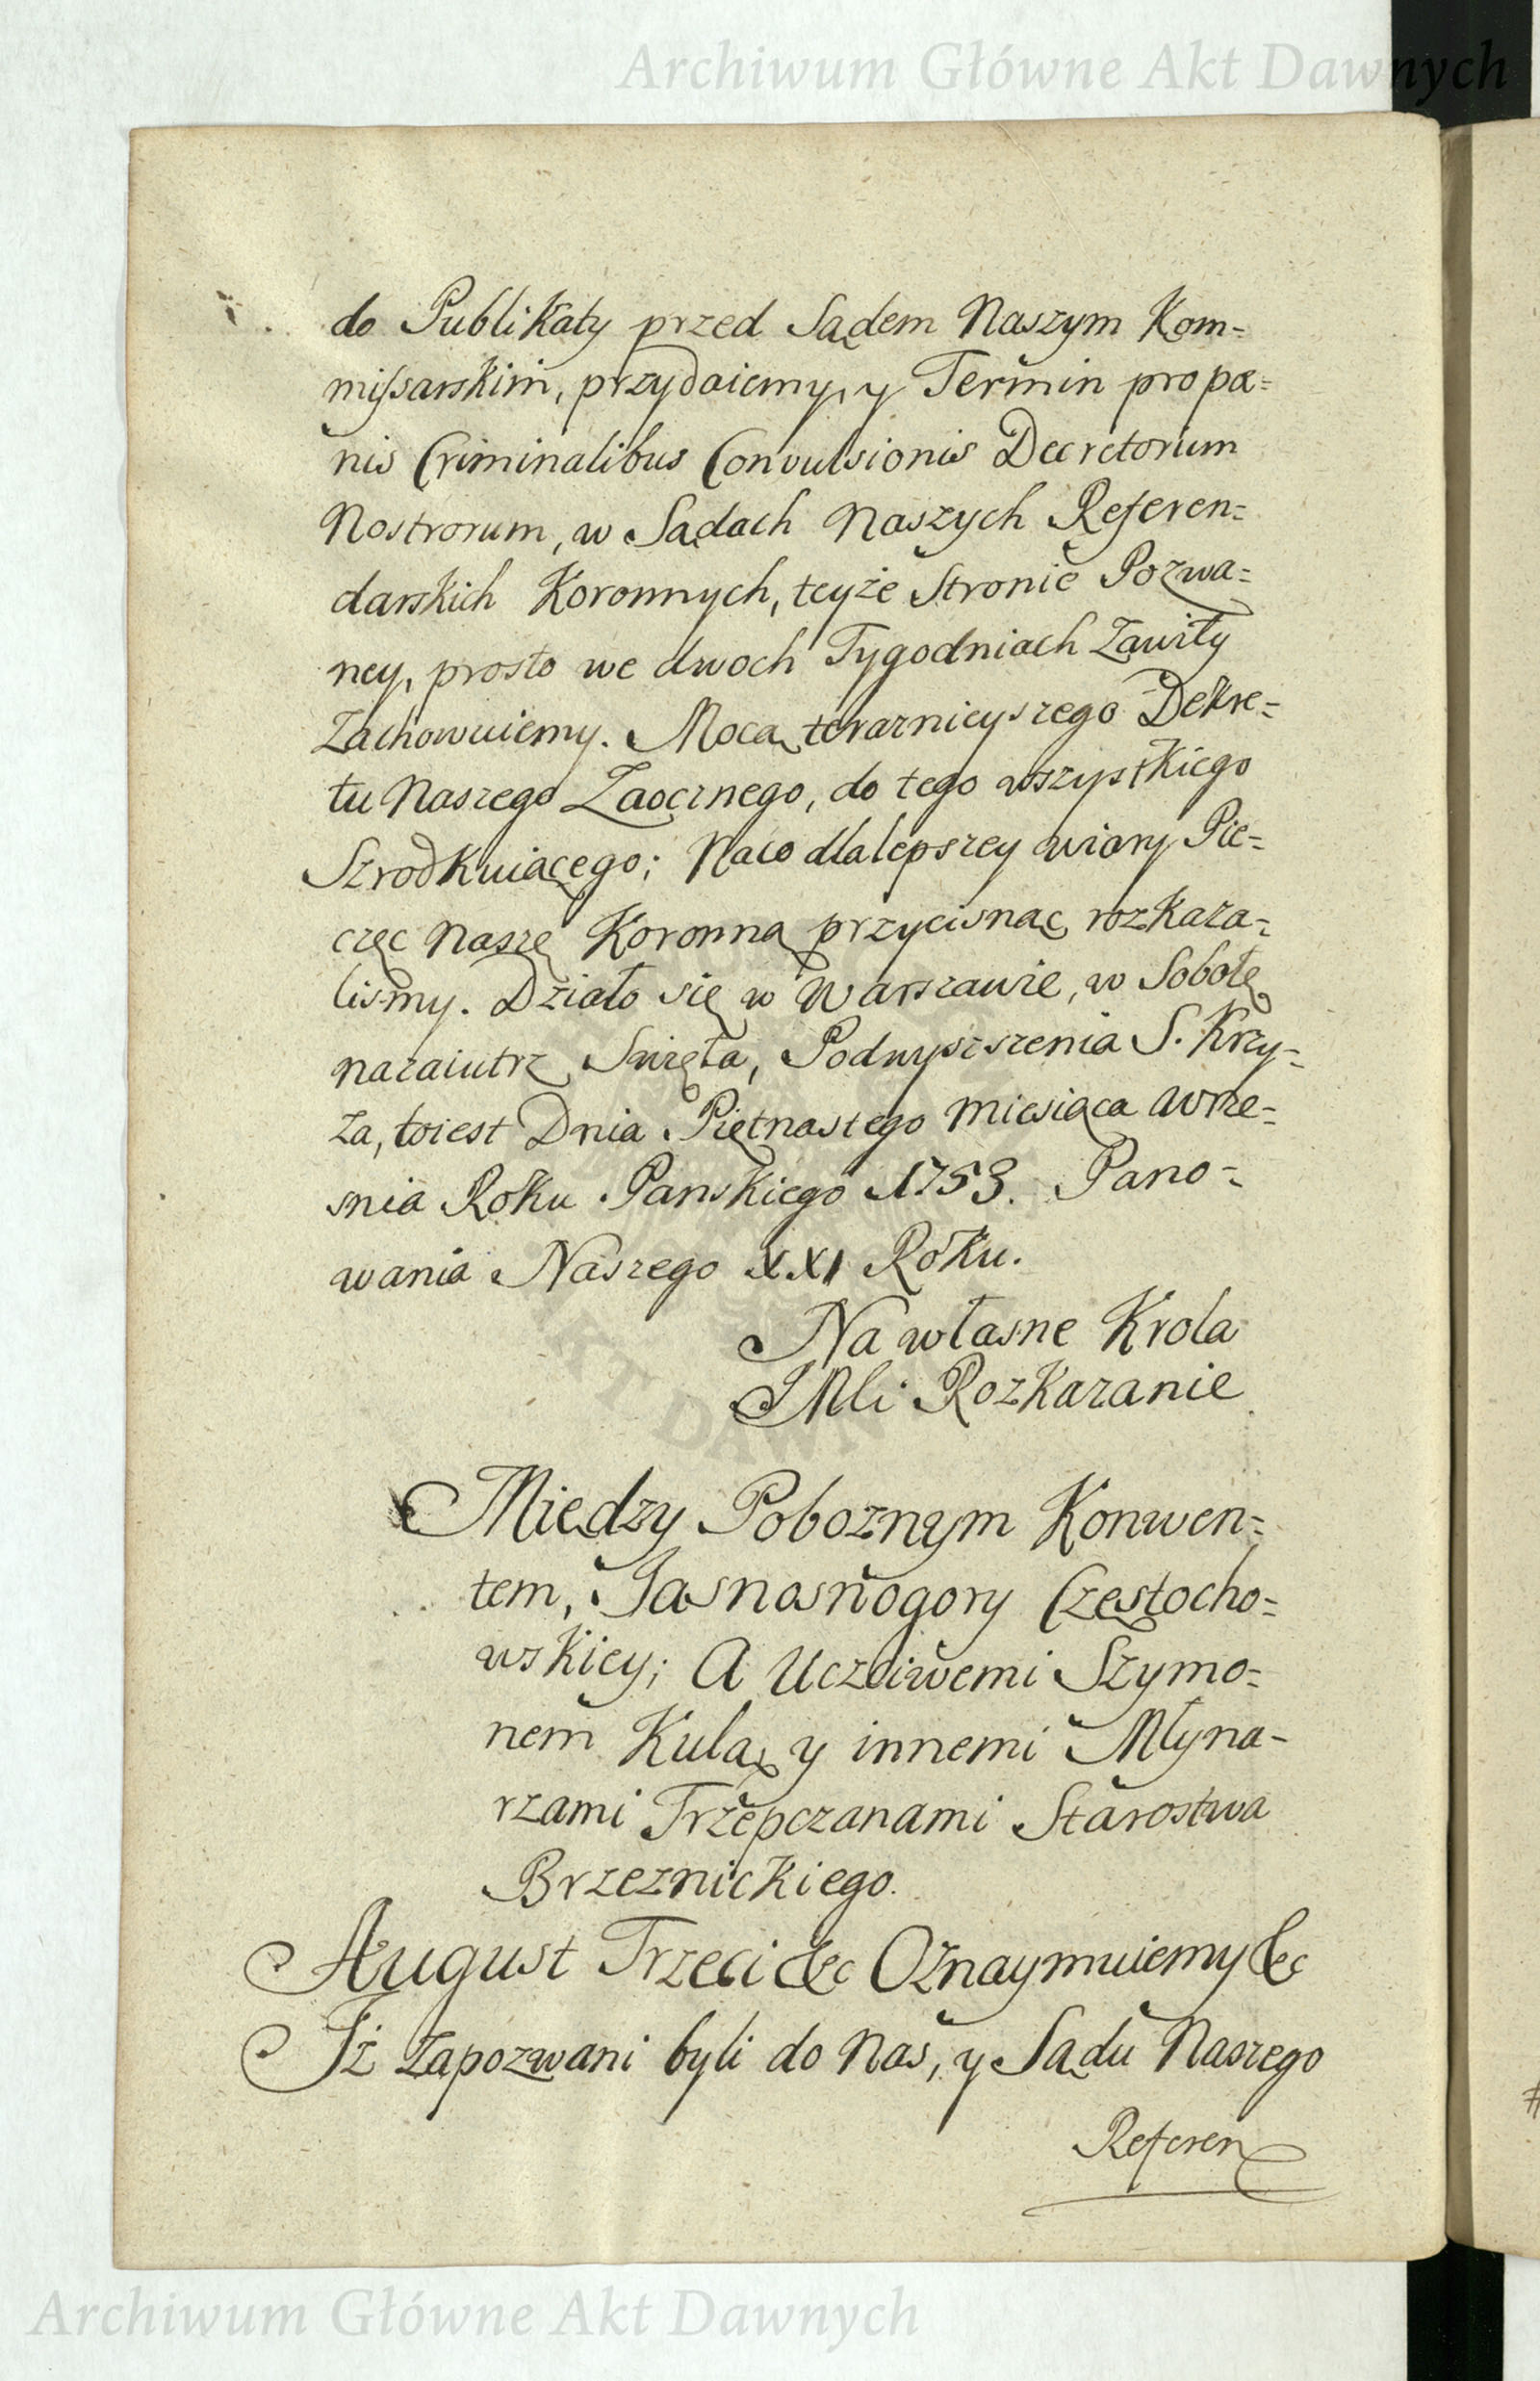 Archiwum Główne Akt Dawnych
do Publikaty przed Sądem Naszym Kom=
missarskim, przydaiemy, y Termin pro pæ=
nis Criminalibus Convulsionis Decretorum
Nostrorum, w Sądach Naszych Referen=
darskich Koronnych, teyże Stronie Pozwa=
ney, prosto we dwoch Tygodniach Zawity
Zachowuiemy. Mocą teraznieyszego Dekre=
tu Naszego Zaocznego, do tego wszystkiego
Szrodkuiącego; Naco dla lepszey wiary Pie=
częc Naszę Koronną przycisnąc rozkaza=
lismy. Działo się w Warszawie, w Sobotę
nazaiutrz Swięta, Podwyszszenia S. Krzy=
za, toiest Dnia Piętnastego Miesiąca Wrze=
snia Roku Panskiego 1753. Pano=
wania Naszego XXI Roku.
Na własne Krola
JMci Rozkazanie
Między Poboznym Konwen=
tem, Jasnosnogory Częstocho=
wskiey; A Uczciwemi Szymo=
nem Kulą, y innemi Młyna=
rzami Trzepczanami Starostwa
Brzeznickiego.
August Trzeci &c Oznaymuiemy &c
Iż Zapozwani byli do Nas, y Sądu Naszego
Referen
Archiwum Główne Akt Dawnych